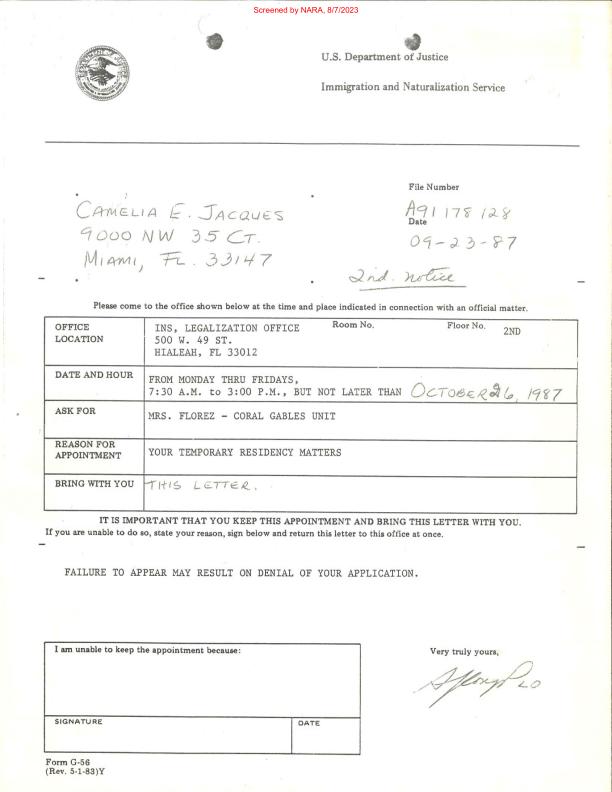 Screened by NARA, 8/7/2023
U.S. Department of Justice
Immigration and Naturalization Service
File Number
CAMELIA E. JACQUES
A91 178 128
9000 NW 35 CT.
Date
09-23-87
MIAMI, FL. 33147
2nd. notice
Please come to the office shown below at the time and place indicated in connection with an official matter.
OFFICE LOCATION
INS, LEGALIZATION OFFICE
Room No.
Floor No. 2ND
500 W. 49 ST.
HIALEAH, FL 33012
DATE AND HOUR
FROM MONDAY THRU FRIDAYS,
7:30 A.M. to 3:00 P.M., BUT NOT LATER THAN OCTOBER 26, 1987
ASK FOR
MRS. FLOREZ - CORAL GABLES UNIT
REASON FOR APPOINTMENT
YOUR TEMPORARY RESIDENCY MATTERS
BRING WITH YOU
THIS LETTER.
IT IS IMPORTANT THAT YOU KEEP THIS APPOINTMENT AND BRING THIS LETTER WITH YOU.
If you are unable to do so, state your reason, sign below and return this letter to this office at once.
FAILURE TO APPEAR MAY RESULT ON DENIAL OF YOUR APPLICATION.
I am unable to keep the appointment because:
Very truly yours,
SIGNATURE
DATE
Form G-56
(Rev. 5-1-83)Y